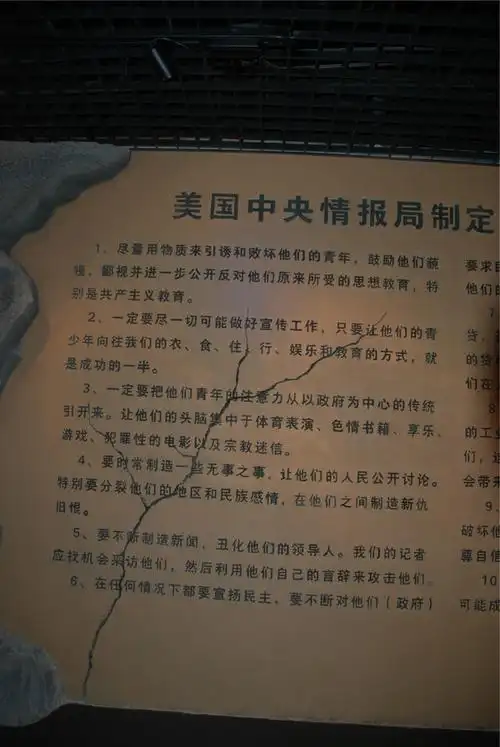 美国中央情报局制定
1、尽量用物质来引诱和败坏他们的青年，鼓励他们藐
视、鄙视并进一步公开反对他们原来所受的思想教育，特
别是共产主义教育。
2、一定要尽一切可能做好宣传工作，只要让他们的青
少年向往我们的衣、食、住、行、娱乐和教育的方式，就
是成功的一半。
3、一定要把他们青年的注意力从以政府为中心的传统
引开来。让他们的头脑集中于体育表演、色情书籍、享乐、
游戏、犯罪性的电影以及宗教迷信。
4、要时常制造一些无事之事，让他们的人民公开讨论。
特别要分裂他们的地区和民族感情，在他们之间制造新仇
旧恨。
5、要不断制造新闻，丑化他们的领导人。我们的记者
应找机会采访他们，然后利用他们自己的言辞来攻击他们。
6、在任何情况下都要宣扬民主。要不断对他们（政府）
要求
他们的
7
货，
的
们在
8
的工
们，
会带来
9、
破坏他
尊自信
10
可能成